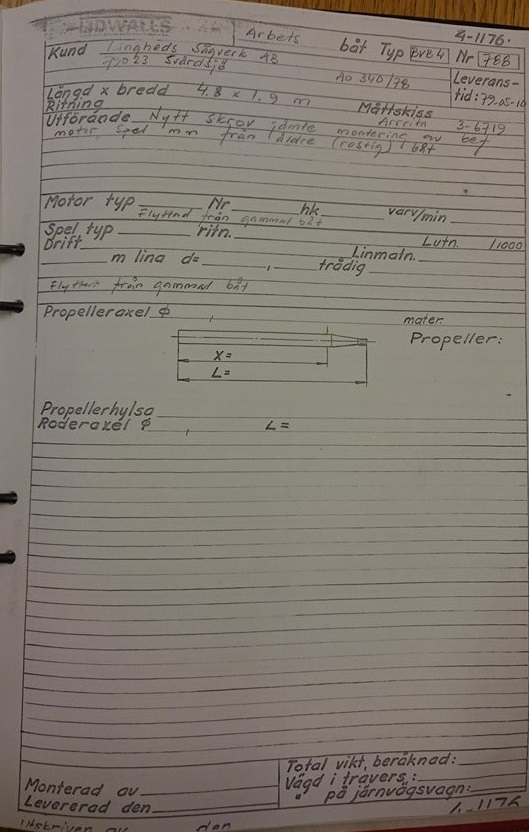 LIDWALLS Arbets båt Typ BVB4 Nr 788
4-1176.
Kund Lingheds Sågverk AB
79023 Svärdsjö
AO 340/78 Leverans-
tid: 79-05-10
Längd x bredd 4.8 x 1.9 m Måttskiss
Ritning 3-6719
Utförande Nytt skrov jämte montering av bef
motor, spel mm från äldre (rostig) båt
Motor typ Nr hk varv/min
Flyttad från gammal båt
Spel typ ritn. Lutn. /1000
Drift Linmatn.
m lina d= , trådig
Flyttat från gammal båt
Propelleraxel ϕ , mater.
Propeller:
X=
L=
Propellerhylsa
Roderaxel ϕ , L=
Total vikt, beräknad:
Monterad av Vägd i travers :
Levererad den " på järnvägsvagn:
4-1176
Inskriven av den